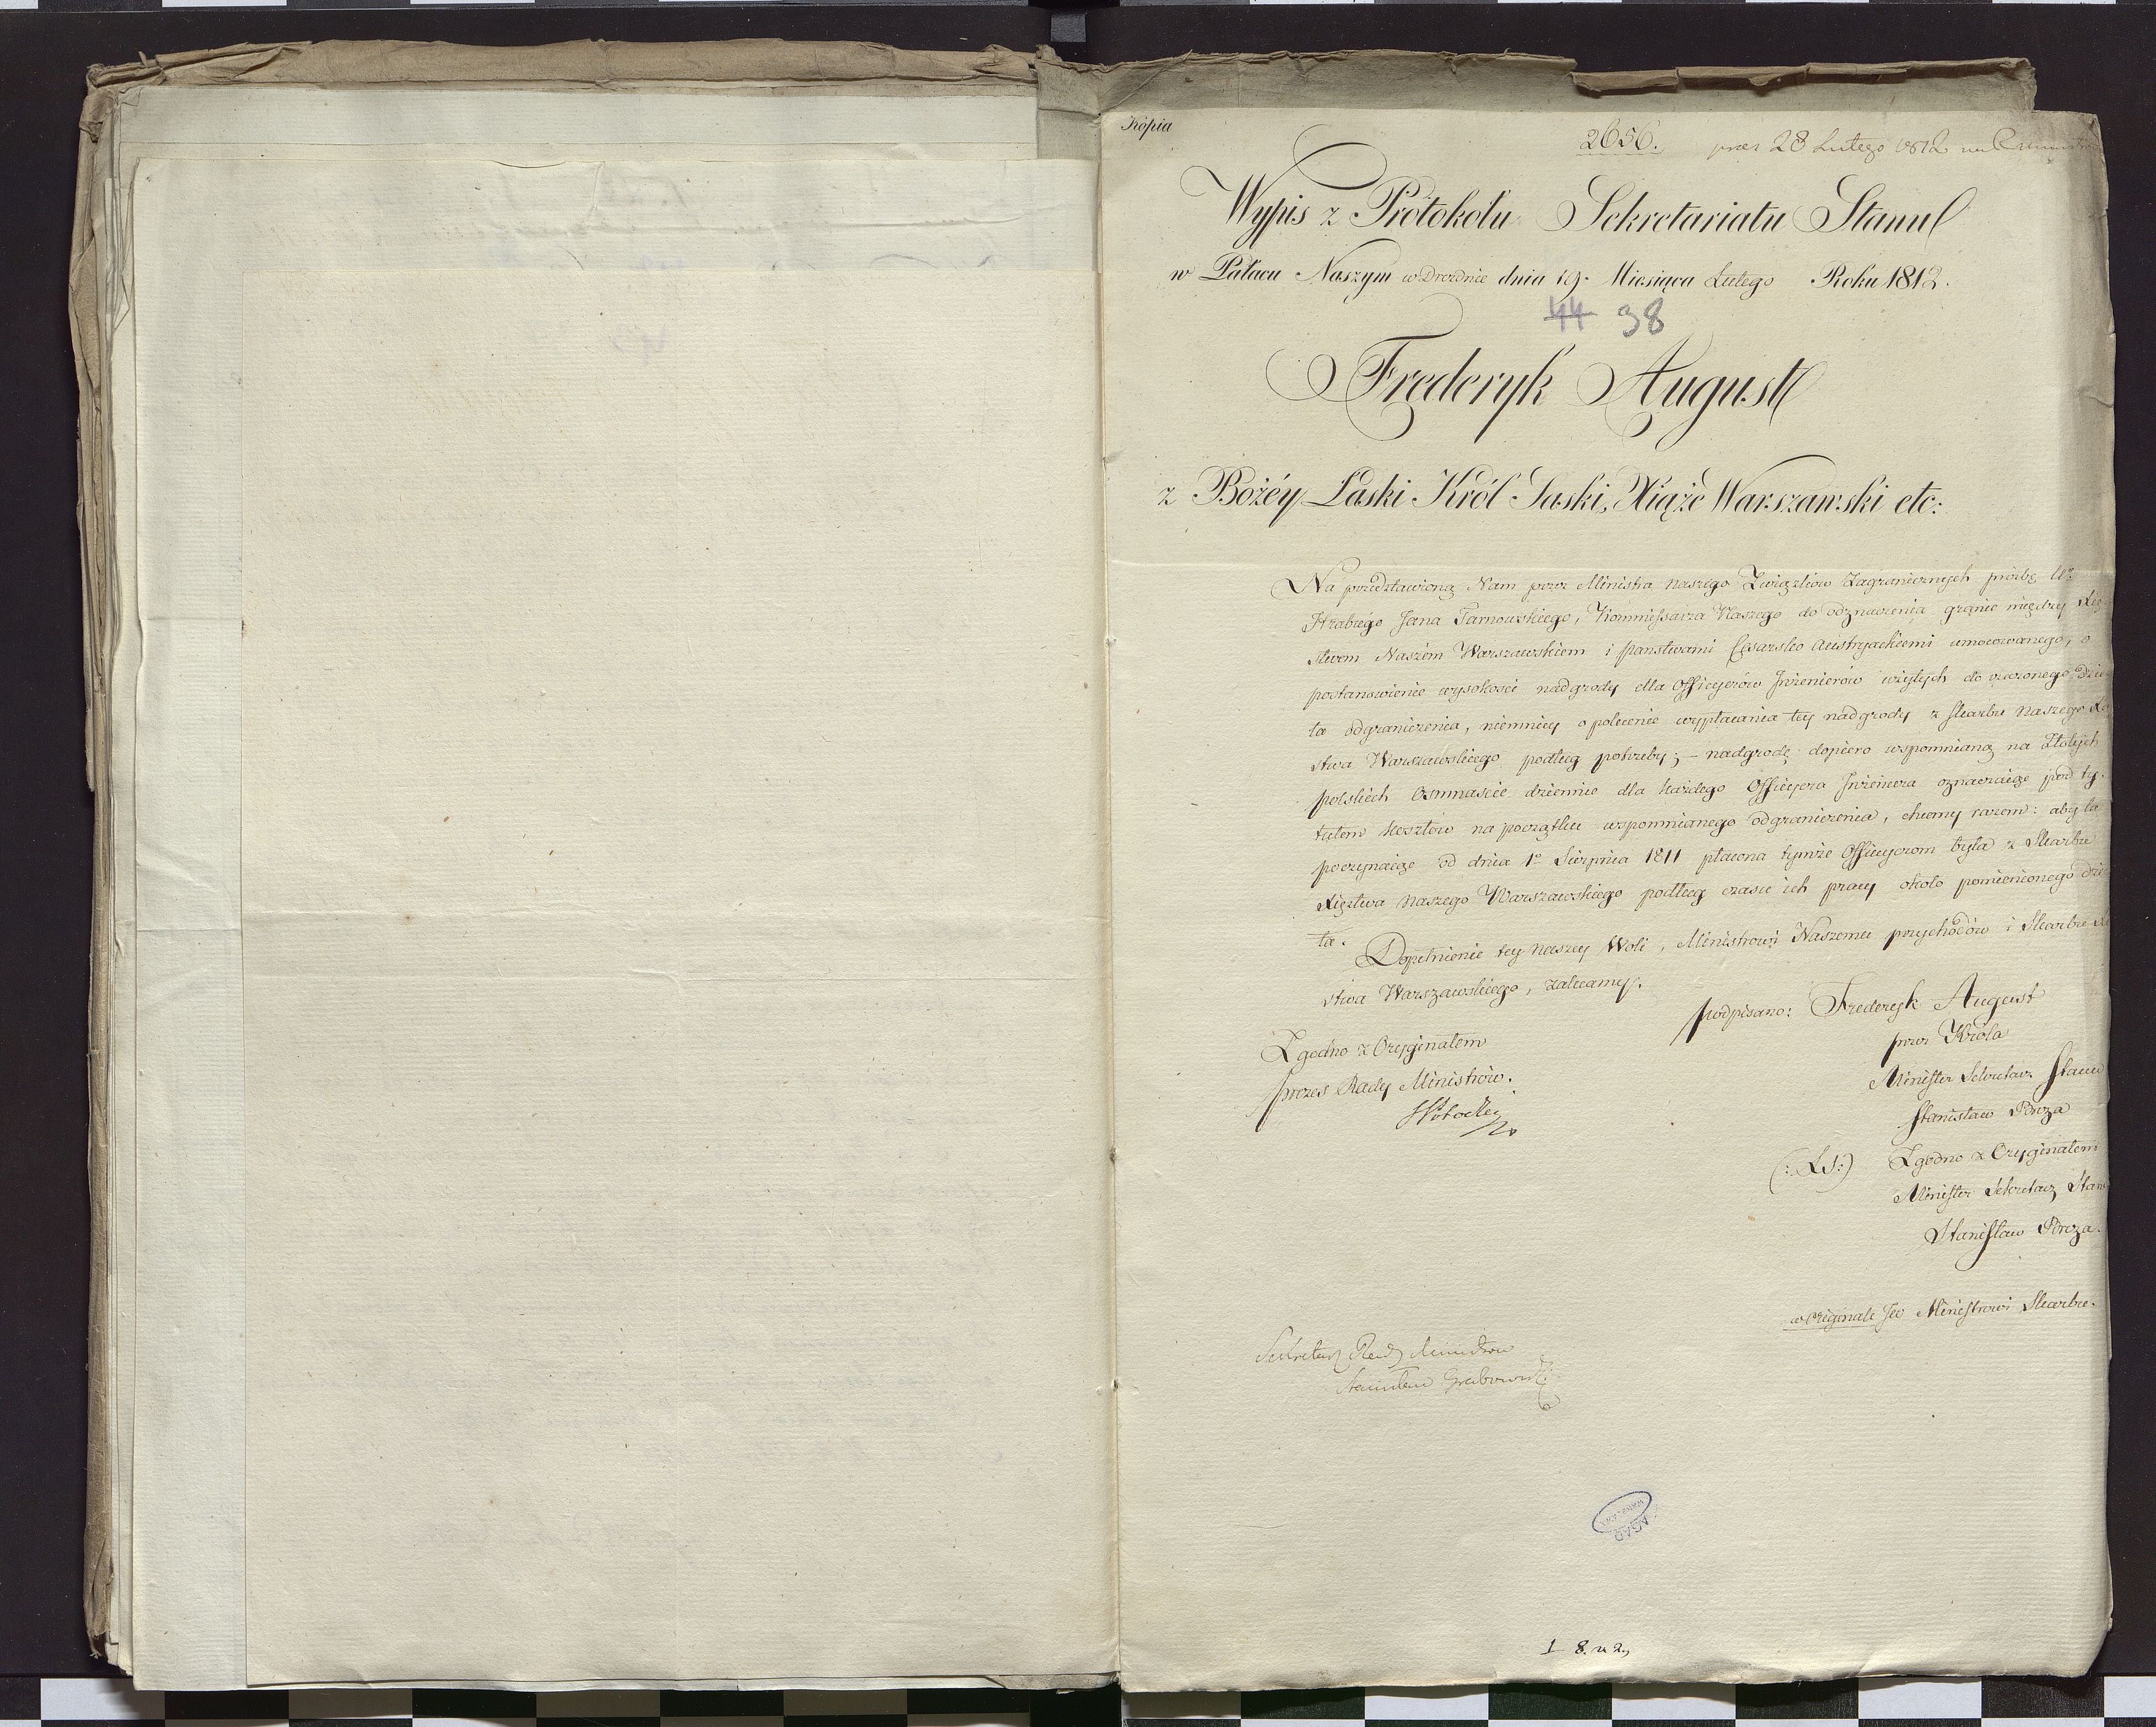 Kópia
2656. prez 28 Lutego 1812
Wypis z Protokołu Sekretariatu Stanu
w Pałacu Naszym w Dreznie dnia 19. Miesiąca Lutego Roku 1812.
44 38
Frederyk August
z Bożéy Łaski Król Saski, Xiąże Warszawski etc:
Na przedstawioną Nam przez Ministra naszego Związków Zagranicznych prozbę Ur
Hrabiego Jana Tarnowskiego, Kommissarza Naszego do odznaczenia granic między Xię
stwem Naszém Warszawskiem i panstwami Cesarsko Austryackiemi umocowanego, o
postanowienie wysokosci nadgrody dla Officyerów Inżenierów użytych do rzeczonego dzie
ła odgraniczenia, niemniey o polecenie wypłacania tey nadgrody z skarbu naszego Xię
stwa Warszawskiego podług potrzeby; – nadgrodę dopiero wspomnianą na Złotych
polskich Osmnascie dziennie dla każdego Officyera Inżeniera oznaczaiąc pod ty-
tułem kosztów na początku wspomnianego odgraniczenia, chcemy razem: aby ta
poczynaiąc od dnia 1o Sierpnia 1811 płacona tymże Officyerom była z Skarbu
Xięztwa Naszego Warszawskiego podług czasu ich pracy około pomienionego dzie
ła.
Dopełnienie tey Naszey Woli, Ministrowi Naszemu przychodów i Skarbu Xię
stwa Warszawskiego, zalecamy.
podpisano: Frederyk August
przez Króla
Minister Sekretarz Stanu
Stanisław Breza
(:LS:) Zgodno z Oryginałem
Minister Sekretarz Stanu
Stanisław Breza.
Zgodno z Oryginałem
prezes Rady Ministrów.
SPotocki
w Originale JW Ministrowi Skarbu.
Sekretarz Rady Ministrow
Stanisław Grabowski
AGAD
WARSZAWA